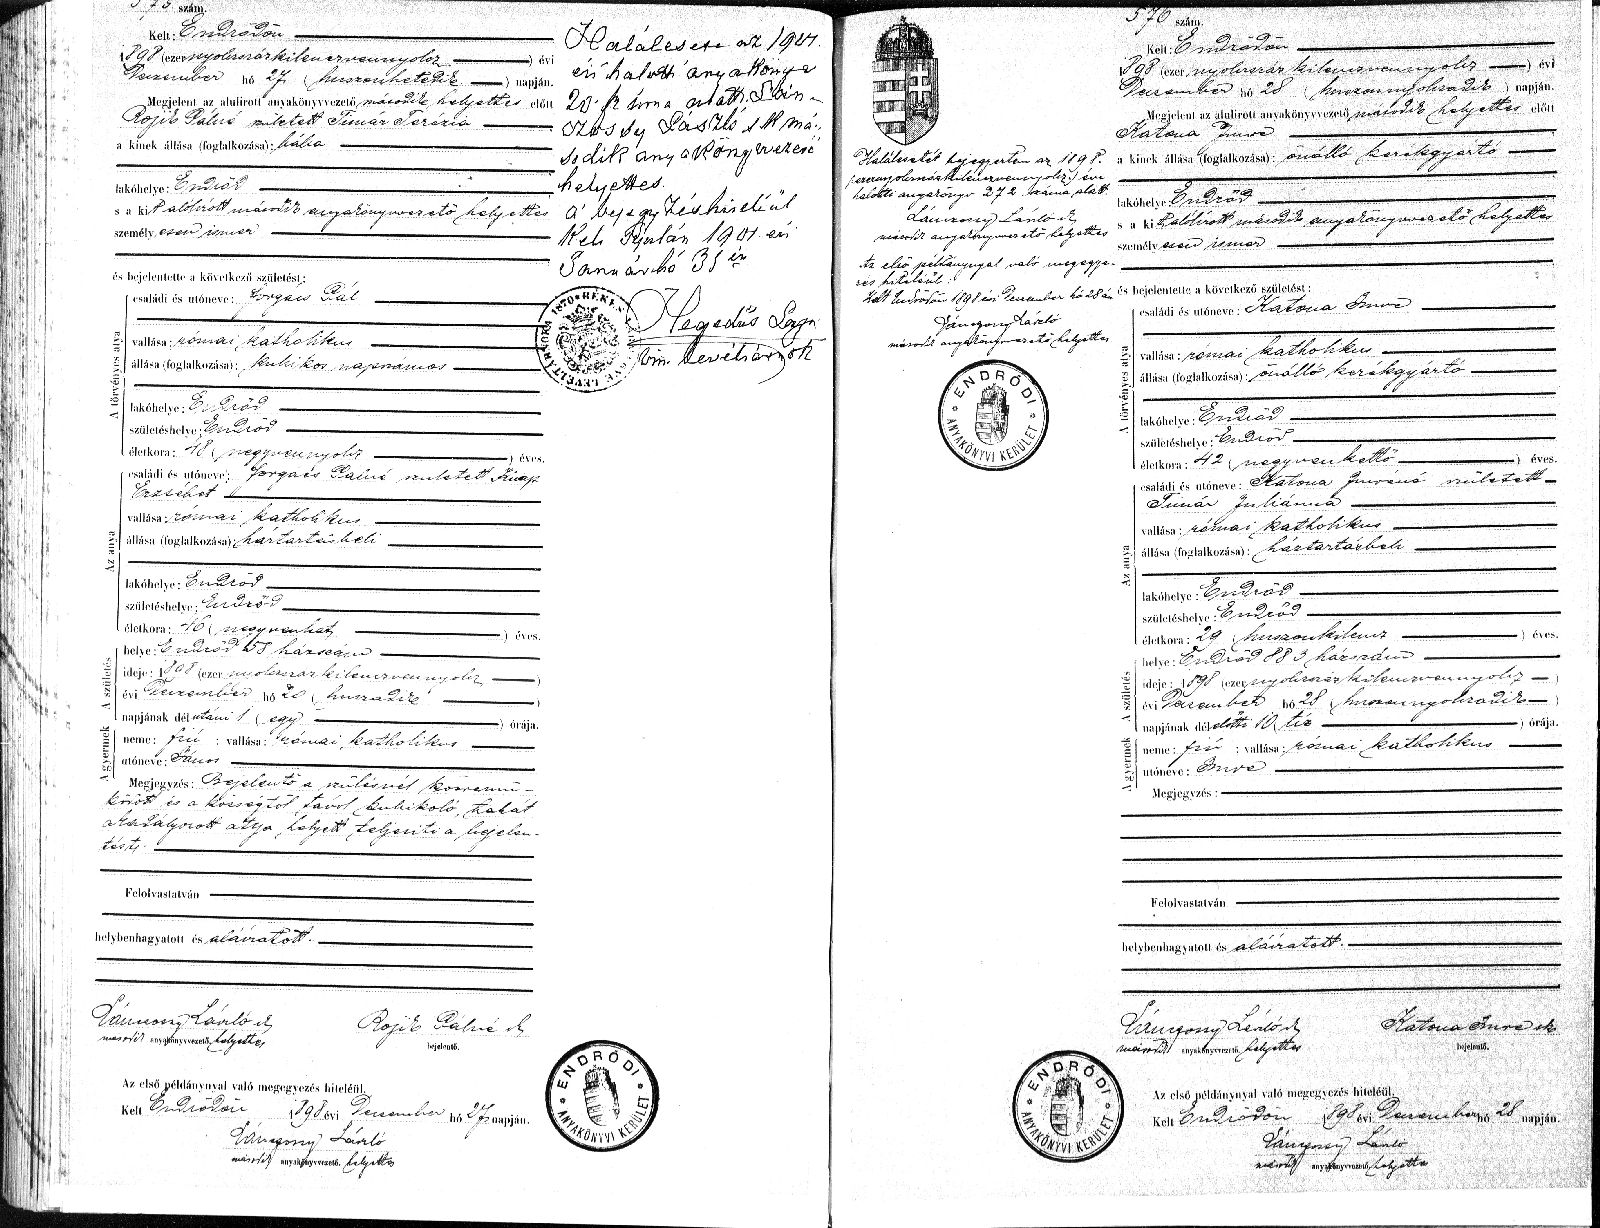 575 szám.
Kelt: Endrődön
1898 (ezer nyolczszázkilenczvennyolcz) évi
Deczember hó 27 (huszonhetedik) napján.
Megjelent az alulirott anyakönyvvezető második helyettes előtt
Rojik Pálné született Timár Terézia
a kinek állása (foglalkozása): bába
lakóhelye: Endrőd
s a kit alólirott második anyakönyvvezető helyettes
személyesen ismer
és bejelentette a következő születést:
A törvényes atya
családi és utóneve: Forgács Pál
vallása: római katholikus
állása (foglalkozása): kubikos napszámos
lakóhelye: Endrőd
születéshelye: Endrőd
életkora: 48 (negyvennyolcz) éves.
Az anya
családi és utóneve: Forgács Pálné született Knap
Erzsébet
vallása: római katholikus
állása (foglalkozása): háztartásbeli
lakóhelye: Endrőd
születéshelye: Endrőd
életkora: 46 (negyvenhat) éves.
A születés
helye: Endrőd 58 házszám
ideje: 1898 (ezer nyolczszázkilenczvennyolcz)
évi Deczember hó 20 (huszadik)
napjának délutáni 1 (egy) órája.
A gyermek
neme: fiú : vallása: római katholikus
utóneve: János
Megjegyzés: Bejelentő a szülésnél közremű-
ködött és a községtől távol kubikoló, tehát
akadályozott atya helyett teljesíti a bejelen-
tést.
Felolvastatván
helybenhagyatott és aláíratott.
Lánczony László sk
második anyakönyvvezető helyettes
Rojik Pálné sk
bejelentő.
Az első példánynyal való megegyezés hiteléül.
Kelt Endrődön 1898 évi Deczember hó 27 napján.
Lánczony László
második anyakönyvvezető helyettes
ENDRŐDI
ANYAKÖNYVI KERÜLET
Halálesete az 1901.
évi halotti anyakönyv
20 ik szám alatt.
László sk má-
sodik anyakönyvvezető
helyettes.
a bejegyzés hiteléül
Kelt Gyulán 1901. évi
Január hó 31 én
Hegedűs
levéltárnok
576 szám.
Kelt: Endrődön
1898 (ezer nyolczszázkilenczvennyolcz) évi
Deczember hó 28 (huszonnyolczadik) napján.
Megjelent az alulirott anyakönyvvezető második helyettes előtt
Katona Imre
a kinek állása (foglalkozása): önálló kerékgyártó
lakóhelye: Endrőd
s a kit alólirott második anyakönyvvezető helyettes
személyesen ismer
és bejelentette a következő születést:
A törvényes atya
családi és utóneve: Katona Imre
vallása: római katholikus
állása (foglalkozása): önálló kerékgyártó
lakóhelye: Endrőd
születéshelye: Endrőd
életkora: 42 (negyvenkettő) éves.
Az anya
családi és utóneve: Katona Imréné született
Timár Juliánna
vallása: római katholikus
állása (foglalkozása): háztartásbeli
lakóhelye: Endrőd
születéshelye: Endrőd
életkora: 29 (huszonkilencz) éves.
A születés
helye: Endrőd 883 házszám
ideje: 1898 (ezer nyolczszázkilenczvennyolcz)
évi Deczember hó 28 (huszonnyolczadik)
napjának délelőtti 10 (tíz) órája.
A gyermek
neme: fiú : vallása: római katholikus
utóneve: Imre
Megjegyzés:
Felolvastatván
helybenhagyatott és aláíratott.
Lánczony László sk
második anyakönyvvezető helyettes
Katona Imre sk
bejelentő.
Az első példánynyal való megegyezés hiteléül.
Kelt Endrődön 1898 évi Deczember hó 28 napján.
Lánczony László
második anyakönyvvezető helyettes
ENDRŐDI
ANYAKÖNYVI KERÜLET
Halálesetét bejegyeztem az 1898.
(ezernyolczszázkilenczvennyolcz) évi
halotti anyakönyv 272 száma alatt
Lánczony László sk
második anyakönyvvezető helyettes
Az első példánynyal való megegye-
zés hiteléül:
Kelt Endrődön 1898 évi Deczember hó 28 án
Lánczony László
második anyakönyvvezető helyettes
ENDRŐDI
ANYAKÖNYVI KERÜLET